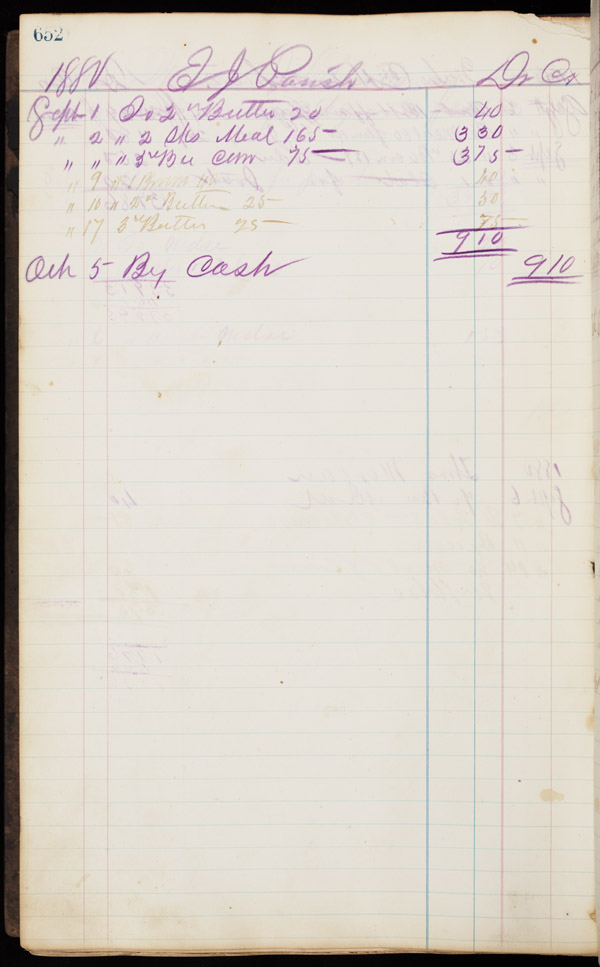 652
1881 E J Parish Dr Cr
Sept 1 To 2 " Butter 20 40
" 2 " 2 Sks Meal 165 3 30
" " " 5 " Bu Corn 75 3 75
" 9 " 1 40 40
" 10 " 2 " Butter 25 50
" 17 3 " Butter 25 75
9 10
Oct 5 By Cash 9 10